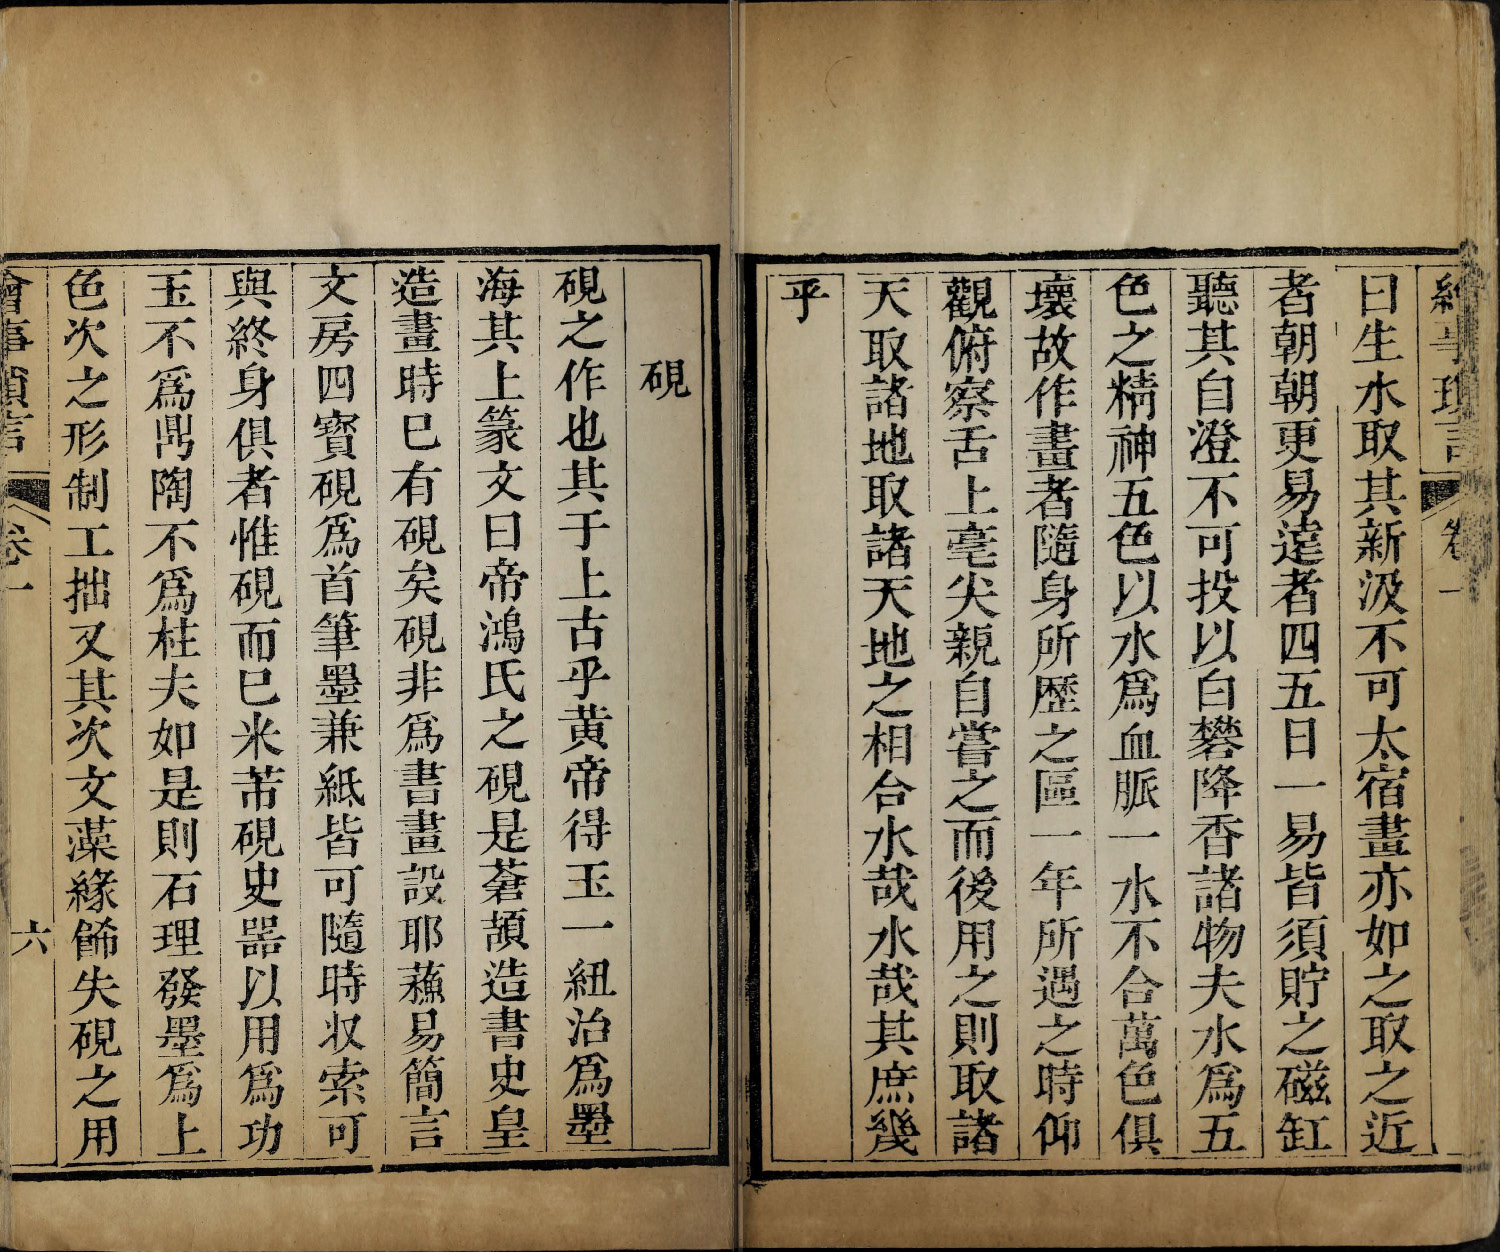 繪事瑣言 卷一
曰生水取其新汲不可太宿畫亦如之取之近
者朝朝更易遠者四五日一易皆須貯之磁缸
聽其自澄不可投以白礬降香諸物夫水爲五
色之精神五色以水爲血脈一水不合萬色俱
壞故作畫者隨身所歷之區一年所遇之時仰
觀俯察舌上毫尖親自嘗之而後用之則取諸
天取諸地取諸天地之相合水哉水哉其庶幾
乎
硯
硯之作也其于上古乎黃帝得玉一紐治爲墨
海其上篆文曰帝鴻氏之硯是蒼頡造書史皇
造畫時巳有硯矣硯非爲書畫設耶蘓易簡言
文房四寶硯爲首筆墨兼紙皆可隨時收索可
與終身俱者惟硯而巳米芾硯史器以用爲功
玉不爲鼎陶不爲柱夫如是則石理發墨爲上
色次之形制工拙又其次文藻緣飾失硯之用
繪事瑣言 卷一 六